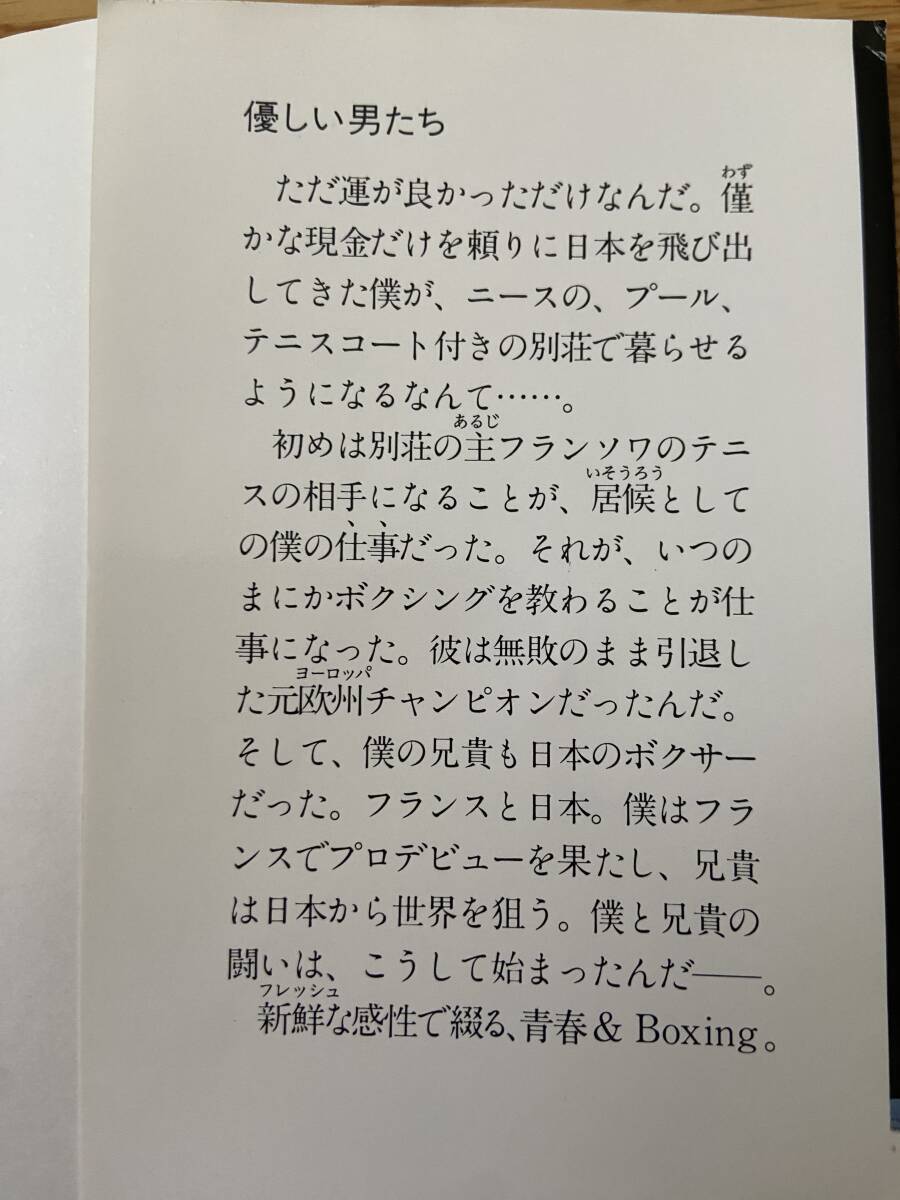 優しい男たち
ただ運が良かっただけなんだ。僅
わず
かな現金だけを頼りに日本を飛び出
してきた僕が、ニースの、プール、
テニスコート付きの別荘で暮らせる
ようになるなんて……。
あるじ
初めは別荘の主フランソワのテニ
いそうろう
スの相手になることが、居候として
の僕の仕事だった。それが、いつの
まにかボクシングを教わることが仕
事になった。彼は無敗のまま引退し
ヨーロッパ
た元欧州チャンピオンだったんだ。
そして、僕の兄貴も日本のボクサー
だった。フランスと日本。僕はフラ
ンスでプロデビューを果たし、兄貴
は日本から世界を狙う。僕と兄貴の
闘いは、こうして始まったんだ——。
フレッシュ
新鮮な感性で綴る、青春& Boxing。